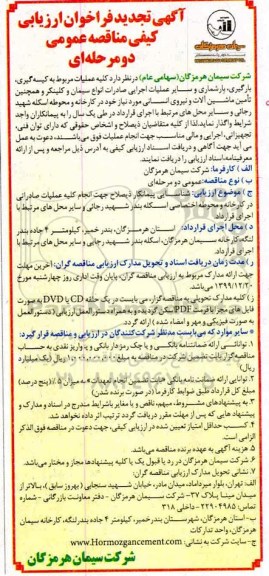 آگهی تجدید فراخوان ارزیابی
کیفی مناقصه عمومی
دو مرحله‌ای
شرکت سیمان هرمزگان (سهامی عام) در نظر دارد کلیه عملیات مربوط به کیسه گیری،
بارگیری، بارشماری و سایر عملیات اجرایی صادرات انواع سیمان و کلینکر و همچنین
تأمین ماشین آلات و نیروی انسانی مورد نیاز خود در کارخانه و محوطه اسکله شهید
رجائی و سایر محل های مرتبط با اجرای قرارداد در طی یک سال را به پیمانکاران واجد
شرایط واگذار نماید. لذا از کلیه متقاضیان ذیصلاح و اشخاص حقوقی که دارای توان فنی،
تجهیزاتی، اجرایی و مالی مناسب جهت انجام عملیات فوق می باشند، دعوت به عمل
می آید جهت آگاهی و دریافت اسناد ارزیابی کیفی به آدرس ذیل مراجعه و پس از ارائه
معرفینامه، اسناد ارزیابی را دریافت نمایند.
الف) کارفرما: شرکت سیمان هرمزگان
ب) نوع مناقصه: عمومی دو مرحله‌ای
ج) موضوع ارزیابی: شناسایی پیمانکار ذیصلاح جهت انجام کلیه عملیات صادراتی
در کارخانه و محوطه اختصاصی اسکله بندر شهید رجائی و سایر محل های مرتبط با
اجرای قرارداد
د) محل اجرای قرارداد: استان هرمزگان، بندر خمیر، کیلومتر ۴ جاده بندر
لنگه، کارخانه سیمان هرمزگان، اسکله بندر شهید رجایی و سایر محل های مرتبط با
اجرای قرارداد.
ر) مدت زمان دریافت اسناد و تحویل مدارک ارزیابی مناقصه گران: آخرین مهلت
جهت ارائه مدارک مربوط به ارزیابی مناقصه گران، پایان وقت اداری روز چهارشنبه مورخ
۱۳۹۹/۱۲/۲۰ می باشد.
ز) کلیه مدارک تحویلی به مناقصه گزار، می بایست در یک حلقه CD یا DVD به صورت
فایل های مجزا با فرمت PDF
به صورت فیزیکی و مهر و امضاء شده) ارائه گردد.
* سایر مواردی که می بایست مدنظر شرکت کنندگان در ارزیابی و مناقصه قرار گیرد:
۱. توانائی ارائه ضمانتنامه بانکی و یا چک رمزدار بانکی و یا واریز نقدی به حساب
مناقصه گزار بابت تضمین شرکت در مناقصه به مبلغ ریال (یک میلیارد
ریال)
۲. توانایی ارائه ضمانتنامه بانکی تضمین انجام تعهدات به میزان ۵٪ (پنج درصد)
مبلغ کل قرارداد طبق ضوابط کارفرما (در صورت برنده شدن)
۳. به پیشنهادهای مشروط، مبهم، ناقص و یا مغایر با شرایط مندرج در اسناد و مدارک و
پیشنهاد هایی که پس از مهلت مقرر دریافت گردد ترتیب اثر داده نخواهد شد.
۴. کسب حداقل امتیاز تعیین شده در ارزیابی کیفی، جهت دعوت در مناقصه فوق الذکر
الزامی است.
۵. هزینه آگهی به عهده برنده مناقصه می باشد.
۶. شرکت سیمان هرمزگان در رد یا قبول یک یا کلیه پیشنهادها مجاز و مختار می باشد.
۷. نشانی تحویل مدارک ارزیابی مناقصه گران
الف- تهران، بلوار میرداماد، میدان مادر، خیابان شهید سنجابی (بهروز سابق)، بالاتر از
میدان مینا پلاک ۳۷- شرکت سیمان هرمزگان - دفتر معاونت بازرگانی - شماره
تماس: ۲۲۹۰۴۹۸۵ - داخلی ۳۱۸
ب- استان هرمزگان، شهرستان بندر خمیر، کیلومتر ۴ جاده بندر لنگه، کارخانه سیمان
هرمزگان، واحد تدارکات
ج- سایت شرکت به نشانی: www.Hormozgancement.com
شرکت سیمان هرمزگان